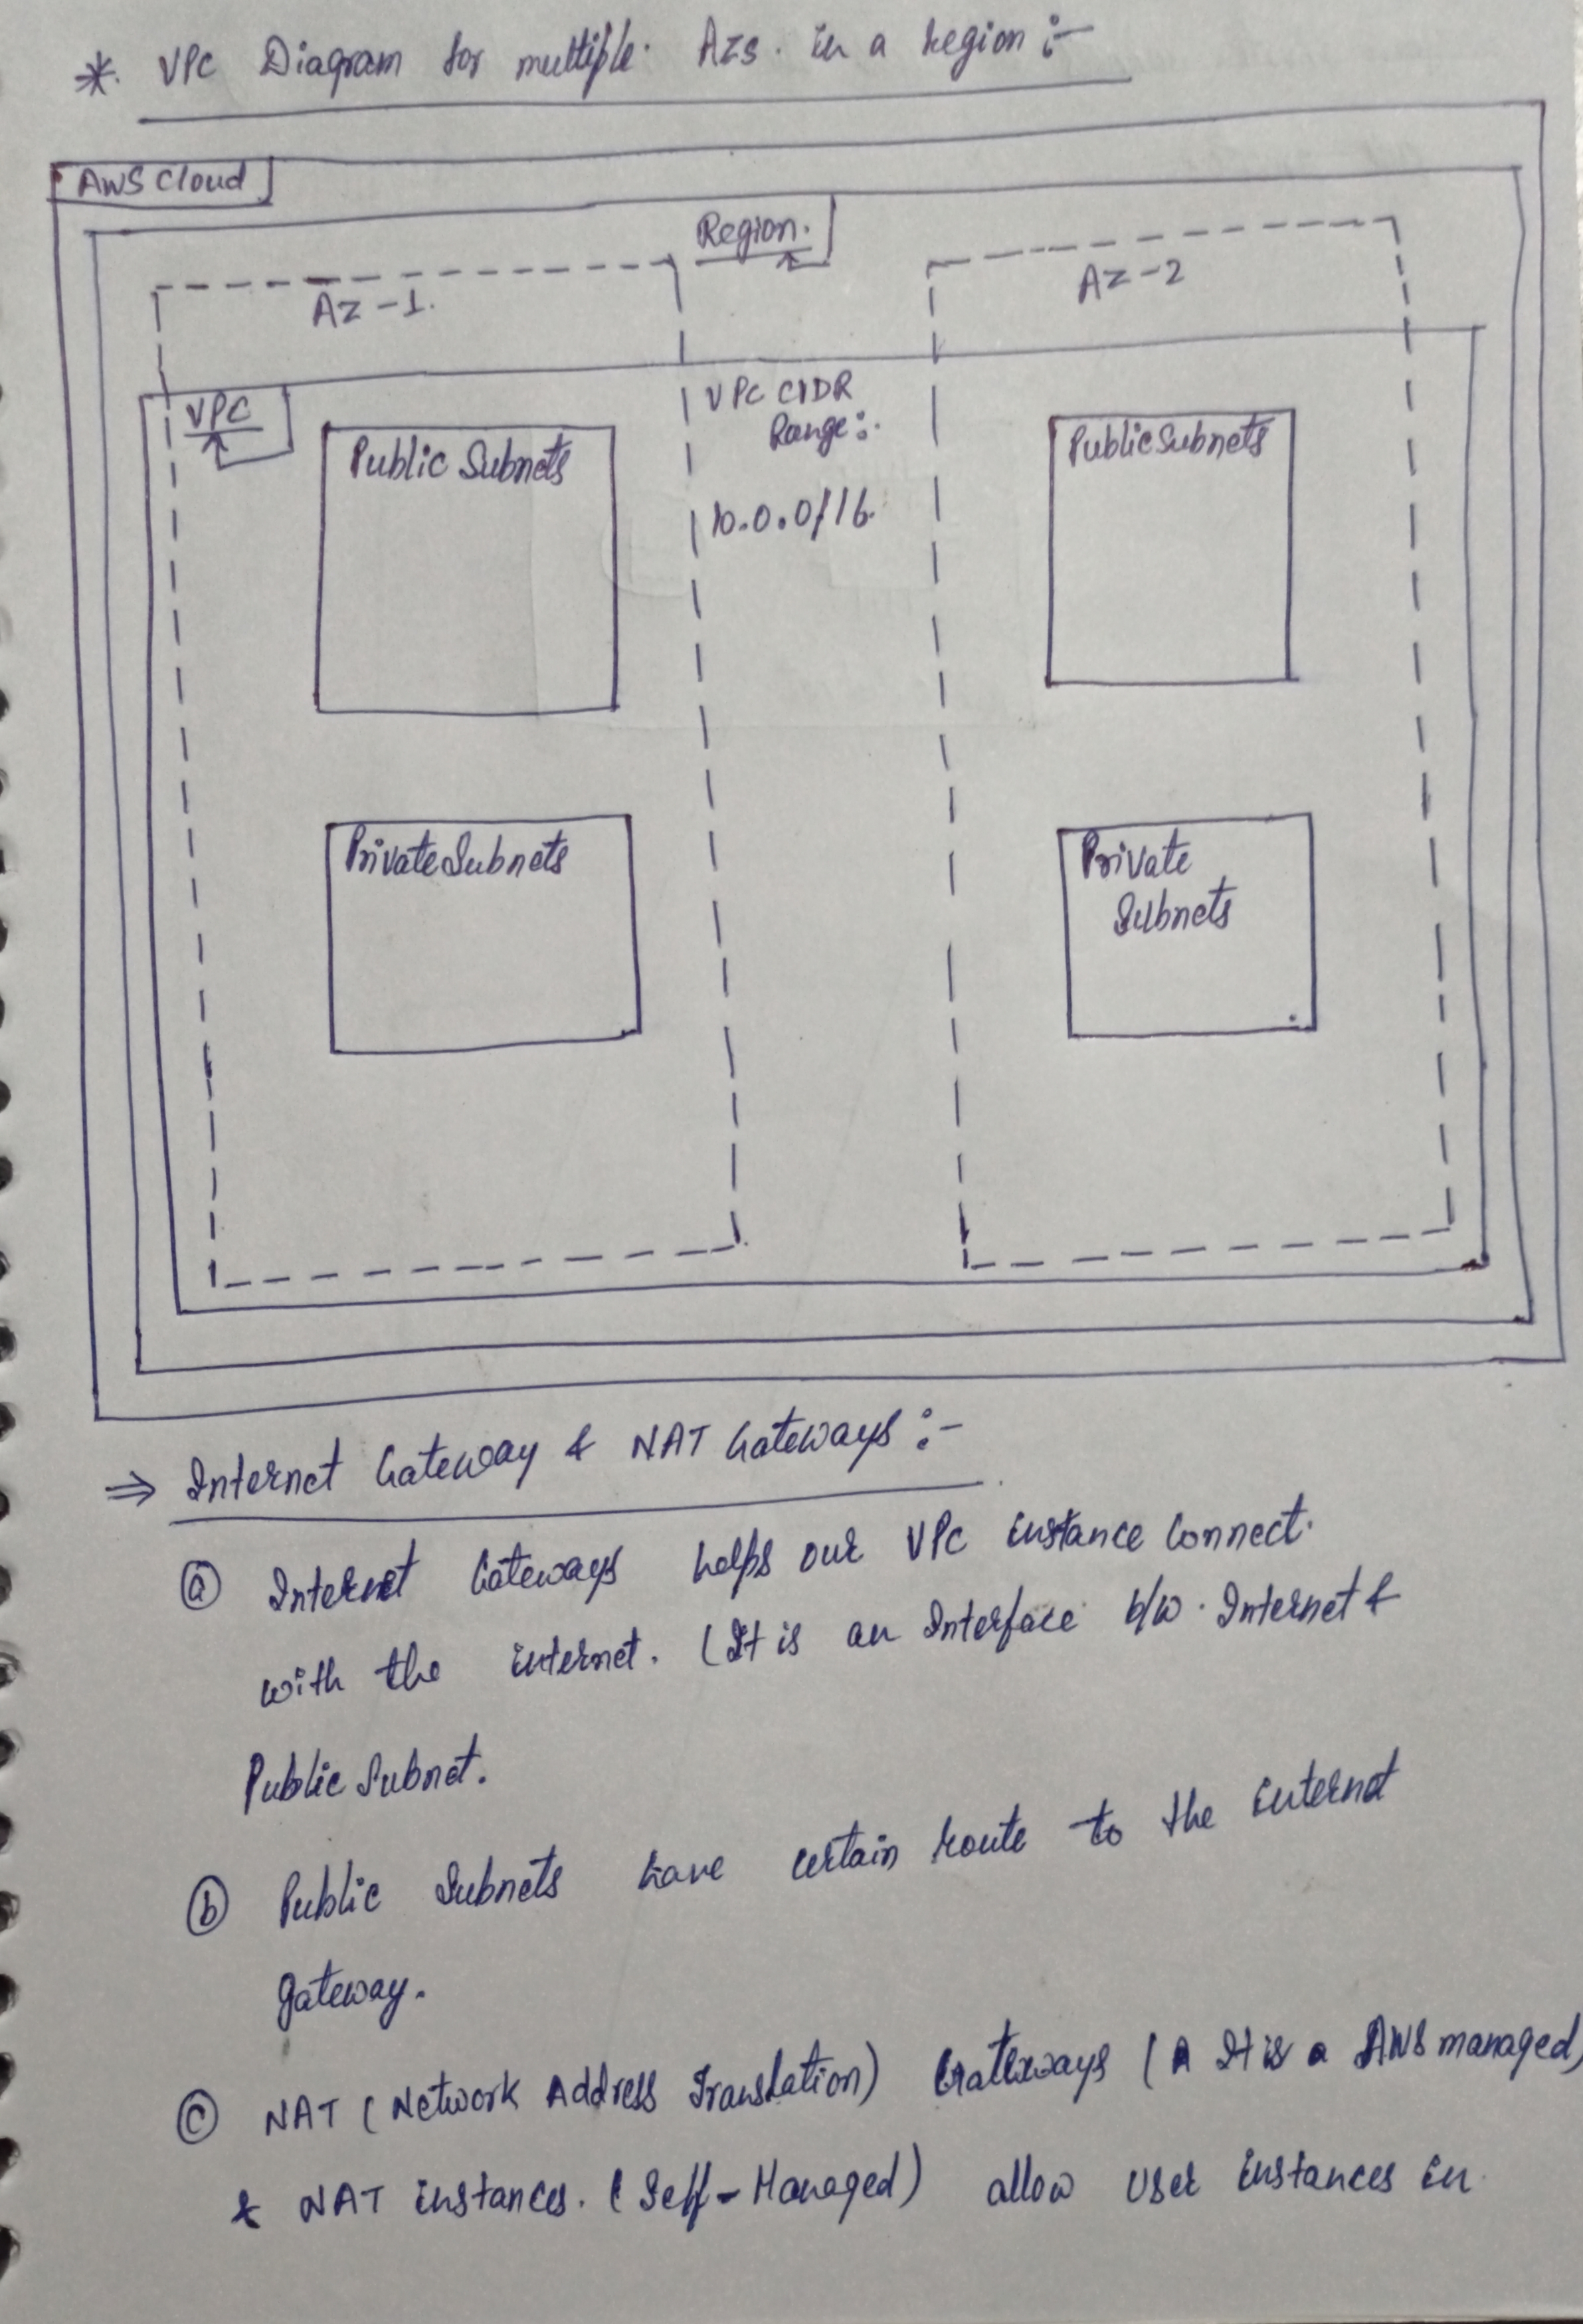 *. VPC Diagram for multiple. AZs. in a region :-
AWS Cloud
Region.
AZ-1.
AZ-2
VPC
VPC CIDR
Range :.
10.0.0/16.
Public Subnets
Public Subnets
Private Subnets
Private
Subnets
⇒ Internet Gateway & NAT Gateways :-
ⓐ Internet Gateways helps our VPC instance Connect.
with the internet. (It is an Interface b/w. Internet &
Public Subnet.
ⓑ Public Subnets have certain route to the internet
gateway.
ⓒ NAT (Network Address Translation) Gateways (A It is a AWS managed)
& NAT instances. (Self-Managed) allow user instances in